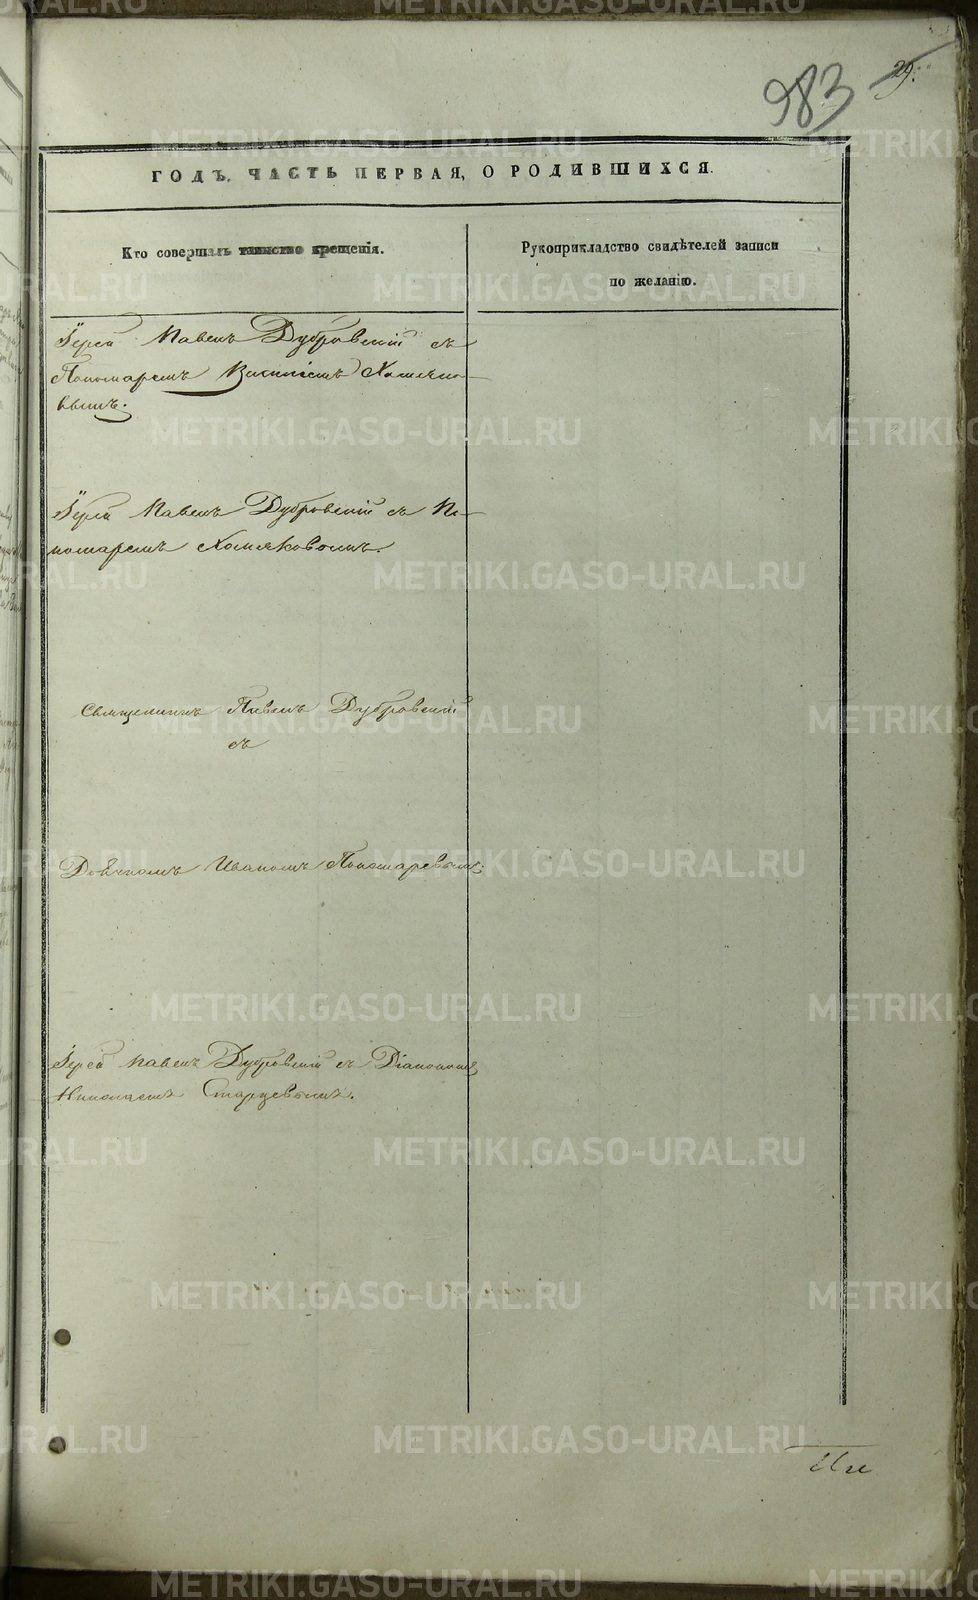 983
29.
ГОДЪ, ЧАСТЬ ПЕРВАЯ, О РОДИВШИХСЯ.
Кто совершалъ таинство крещенія.
Рукоприкладство свидѣтелей записи
по желанію.
Іерей Павелъ Дубровскій съ
Пономаремъ Василіемъ Хомяко-
вымъ.
Іерей Павелъ Дубровскій съ По-
номаремъ Хомяковымъ.
Священникъ Павелъ Дубровскій
съ
Дьячкомъ Иваномъ Пономаревымъ
Іерей Павелъ Дубровскій съ Діакономъ
Николаемъ Старцевымъ.
METRIKI.GASO-URAL.RU